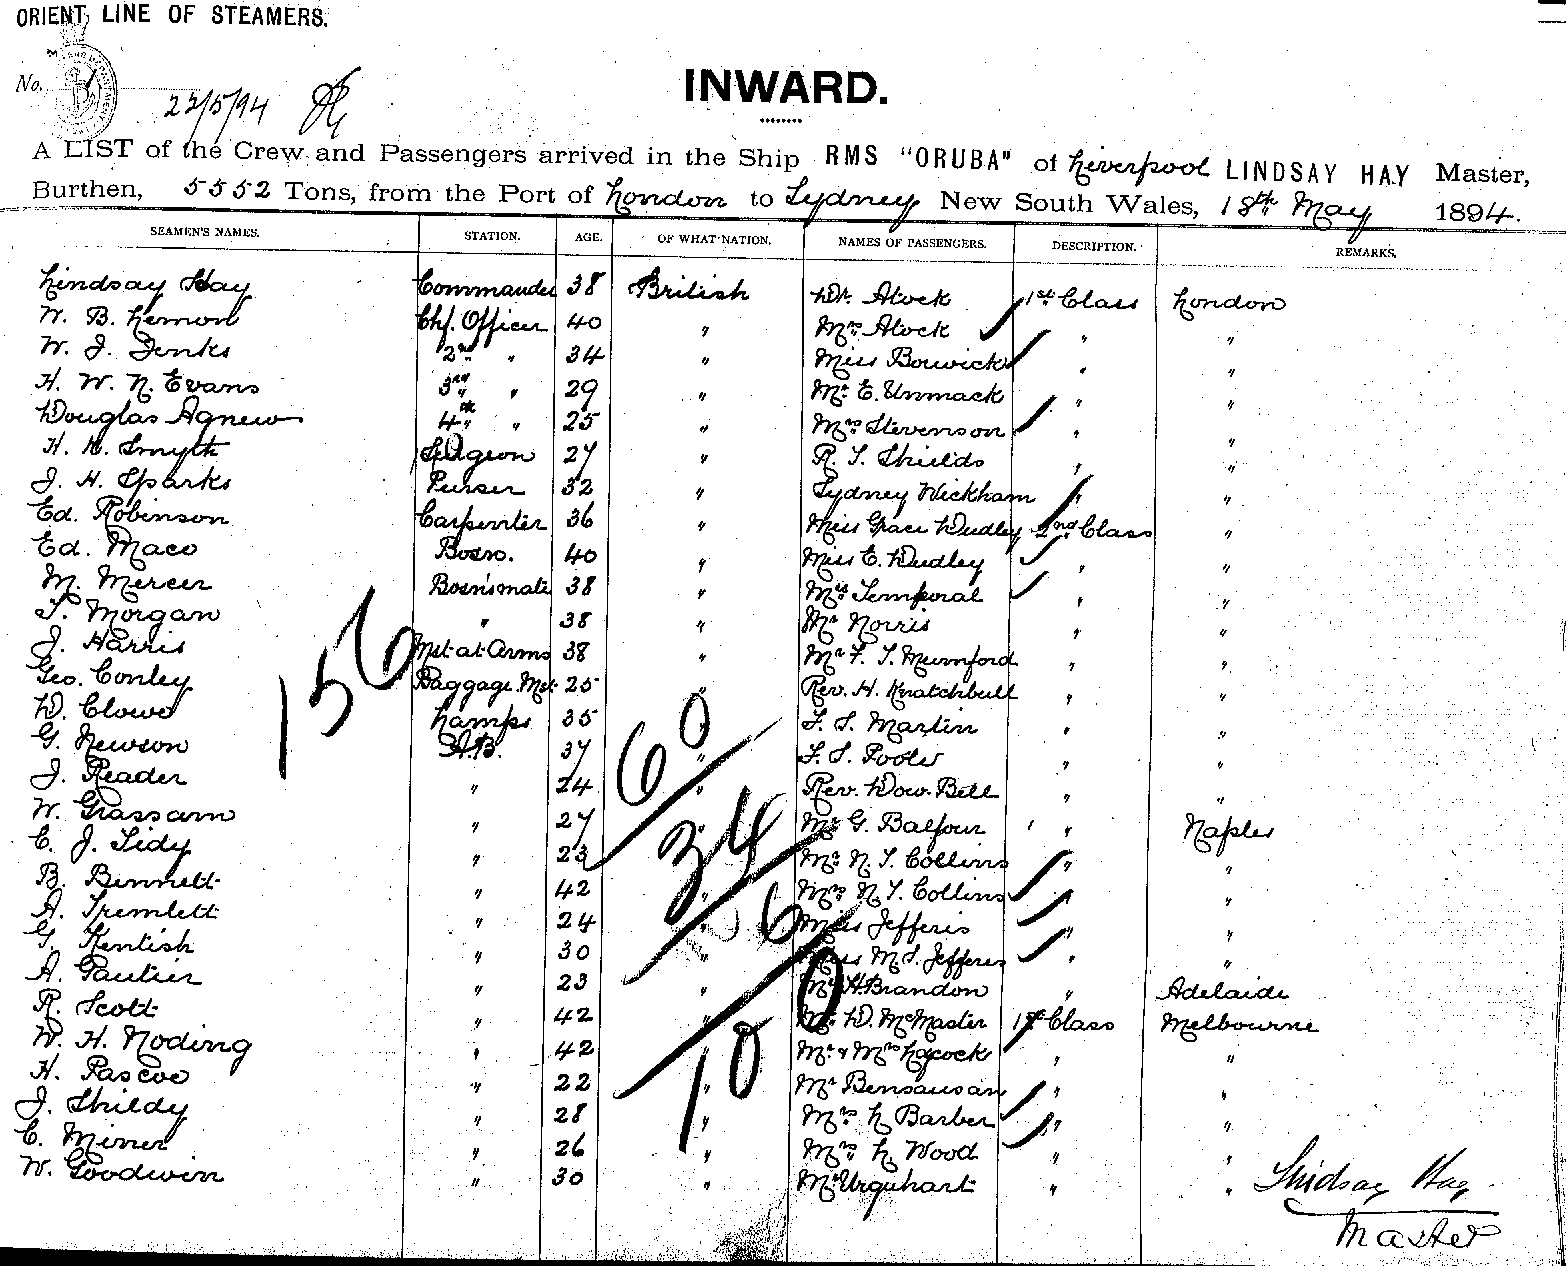 ORIENT LINE OF STEAMERS.
No.
22/5/94
INWARD.
A LIST of the Crew and Passengers arrived in the Ship RMS "ORUBA" of Liverpool LINDSAY HAY Master,
Burthen, 5552 Tons, from the Port of London to Sydney New South Wales, 18th May 1894.
SEAMEN'S NAMES. STATION. AGE. OF WHAT NATION. NAMES OF PASSENGERS. DESCRIPTION. REMARKS.
Lindsay Hay Commander 38 British Dr. Alock 1st Class London
W. B. Lemon Chf. Officer 40 " Mrs Alock " "
W. J. Jenks 2nd " 34 " Miss Borwick " "
H. W. N. Evans 3rd " 29 " Mr. E. Unmack " "
Douglas Agnew 4th " 25 " Mrs Stevenson " "
H. M. Smyth Surgeon 27 " R. S. Shields " "
J. H. Sparks Purser 32 " Sydney Wickham " "
Ed. Robinson Carpenter 36 " Miss Grace Dudley 2nd Class "
Ed. Mace Bosn. 40 " Miss E. Dudley " "
M. Mercer Bosn's mate 38 " Mrs Temporal " "
T. Morgan " 38 " Mr Norris " "
J. Harris Mst at Arms 38 " Mr F. T. Mumford " "
Geo. Conley Baggage Mst 25 " Rev. H. Knatchbull " "
D. Clowe Lamps 35 " F. S. Martin " "
G. Newson A.B. 37 " F. S. Poole " "
J. Reader " 24 " Rev. Dow. Bell " "
W. Grassam " 27 " Mr G. Balfour " Naples
C. J. Tidy " 23 " Mr. N. T. Collins " "
B. Bennett " 42 " Mrs N. T. Collins " "
A. Tremlett " 24 " Miss Jefferis " "
G. Kentish " 30 " Miss M. S. Jefferis " "
A. Gautier " 23 " Mr H Brandon " Adelaide
R. Scott " 42 " Mr. D. McMaster 1st Class Melbourne
W. H. Noding " 42 " Mr & Mrs Laycock " "
H. Pascoe " 22 " Mr Bensausan " "
J. Shildy " 28 " Mrs L Barber " "
C. Minner " 26 " Mrs L Wood " "
W. Goodwin " 30 " Mr Urquhart " "
156
60
34
6
100
Lindsay Hay
Master